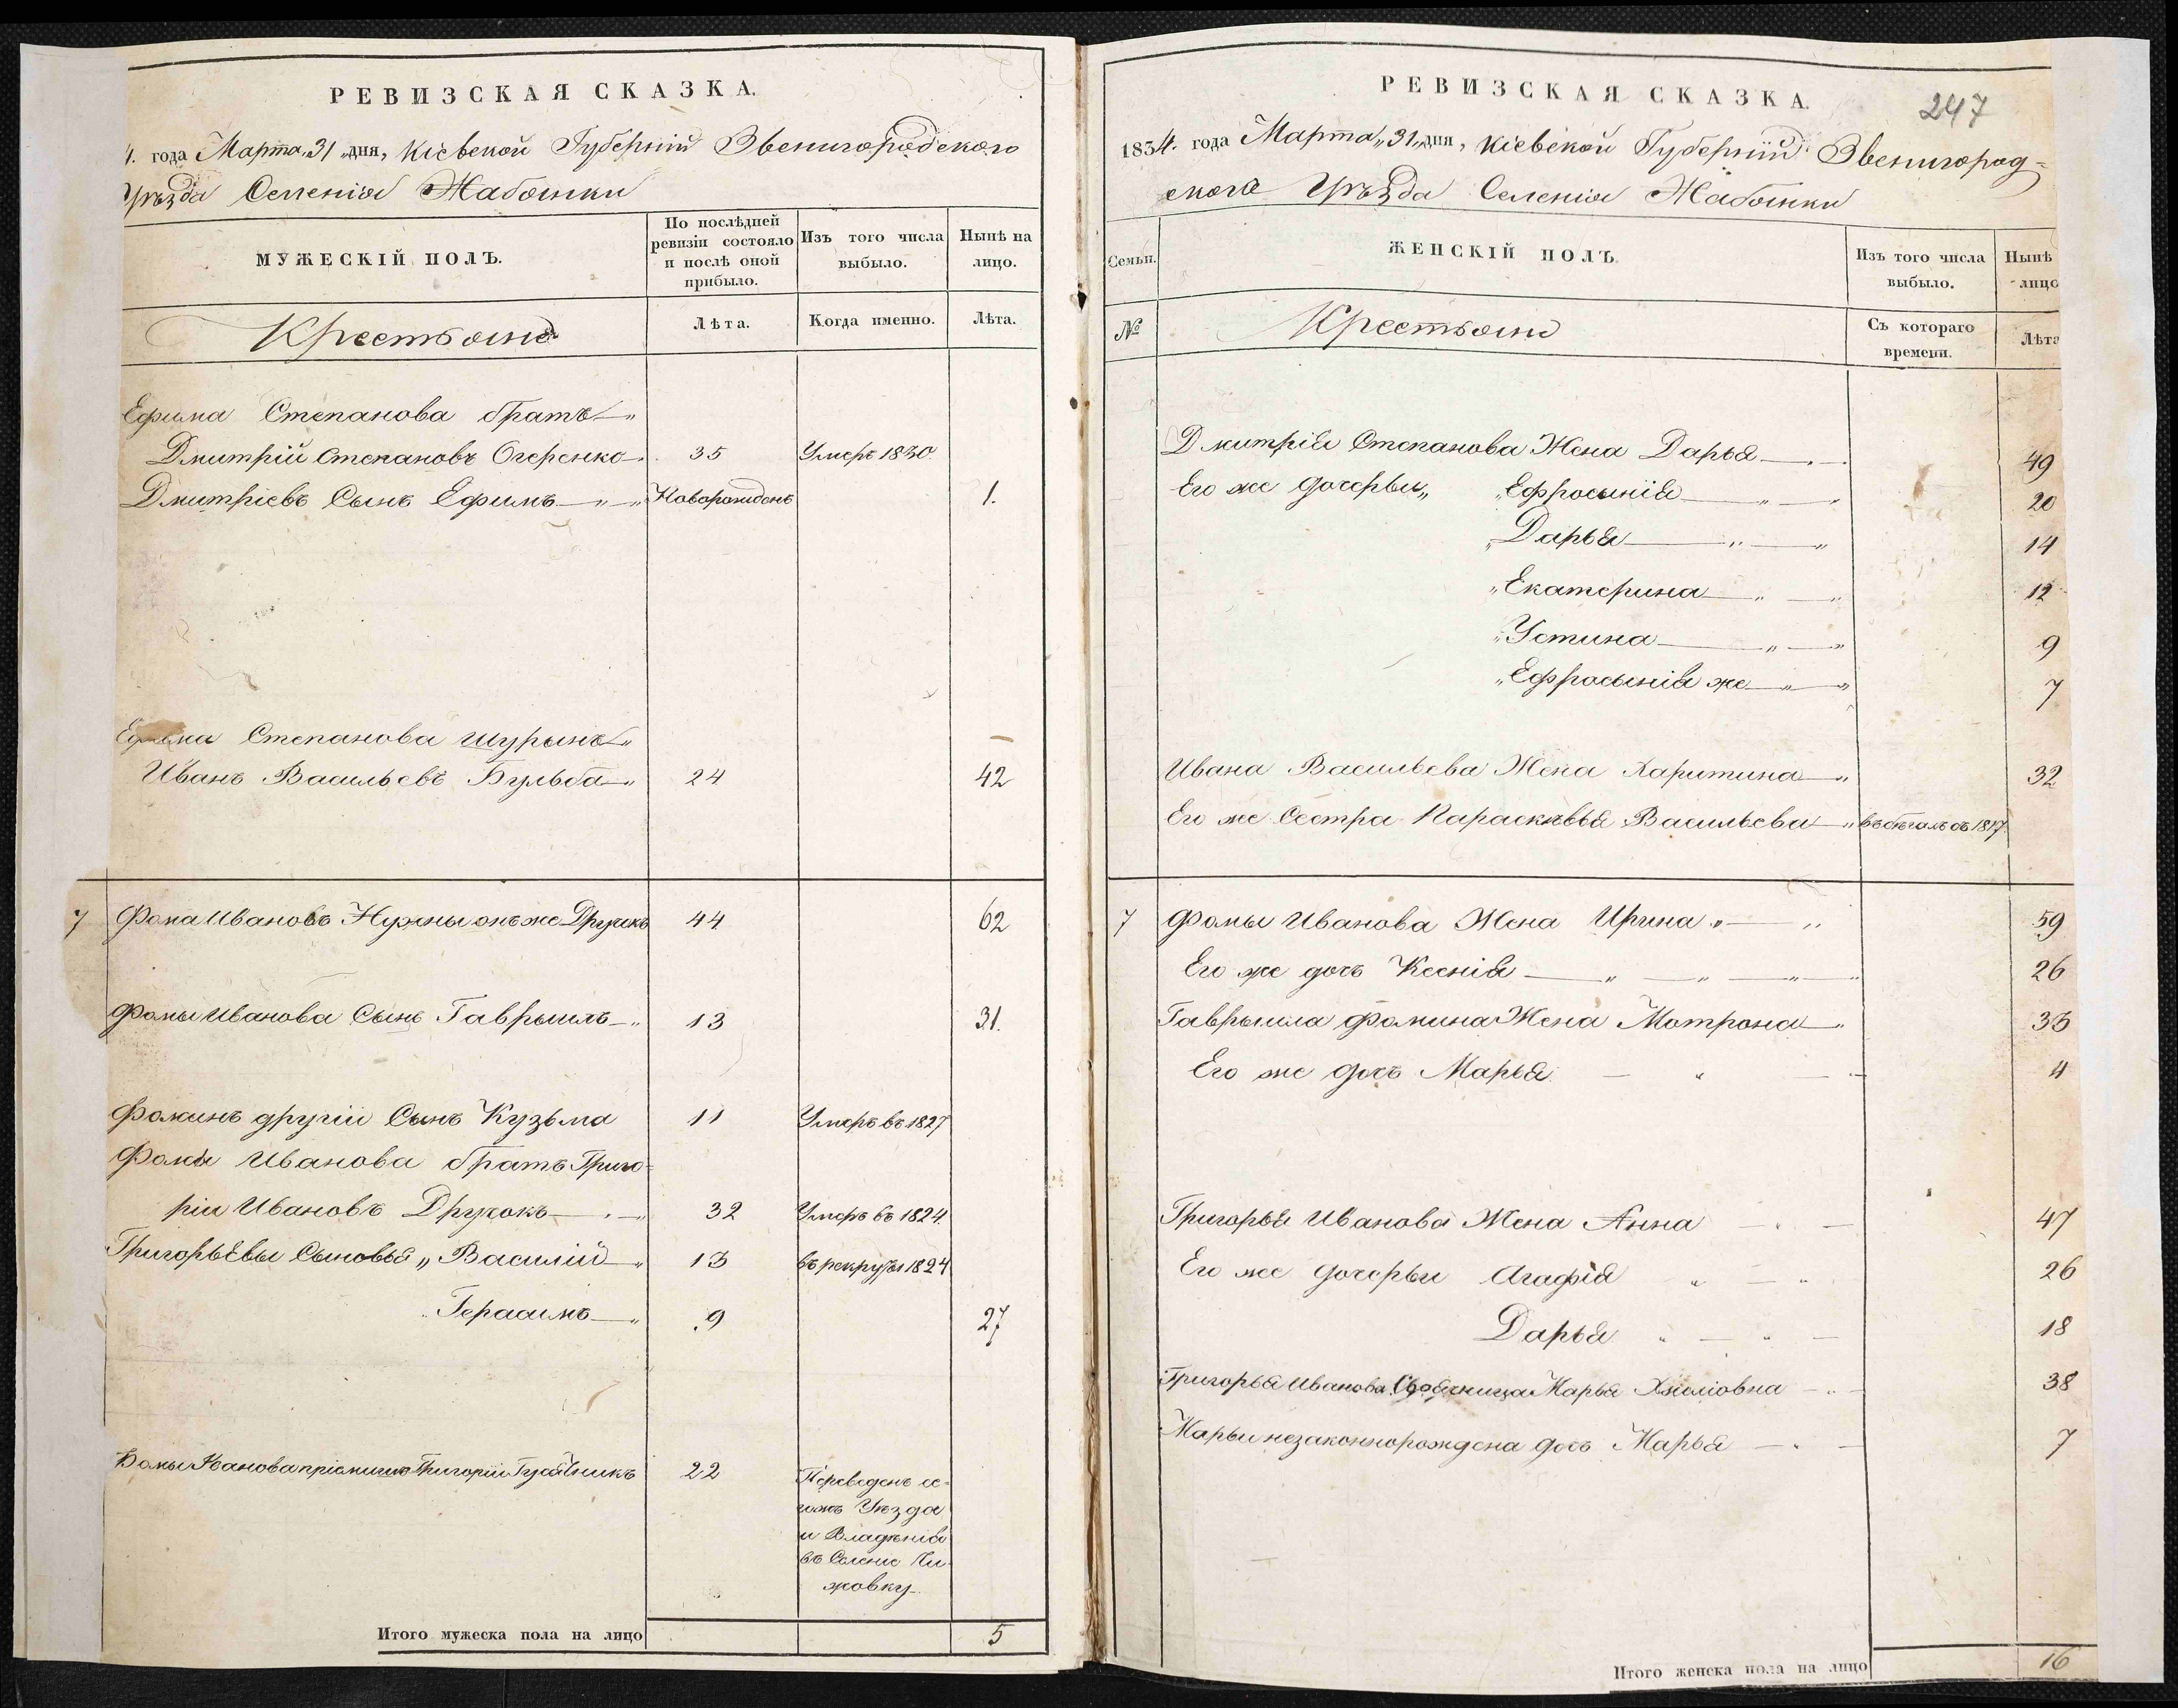 РЕВИЗСКАЯ СКАЗКА.
4. года Марта „31„ дня, Кіевской Губерніи Звенигородского
Уѣзда Селенія Жабоинки
МУЖЕСКІЙ ПОЛЪ.
По послѣдней ревизіи состояло и послѣ оной прибыло.
Изъ того числа выбыло.
Нынѣ на лицо.
Крестьяне
Лѣта.
Когда именно.
Лѣта.
Ефима Степанова братъ
Дмитрій Степановъ Огеренко 35 Умеръ 1830.
Дмитріевъ Сынъ Ефимъ Новорожденъ 1.
Ефима Степанова шурынъ
Иванъ Васильевъ Бульба 24 42
7 Фома Ивановъ Нужны онъ же Дрючкъ 44 62
Фомы Иванова Сынъ Гаврыилъ 13 31.
Фоминъ другіи Сынъ Кузьма 11 Умеръ въ 1827
Фомы Иванова братъ Григо-
ріи Ивановъ Дрючокъ 32 Умеръ въ 1824.
Григорьевы Сыновья „ Василій 13 въ рекруты 1824
Герасимъ 9 27
Фомы Иванова пріемишъ Григоріи 22 Переведенъ се-
гожъ Уѣзда
и Владѣнія
въ Селеніе
жовку
Итого мужеска пола на лицо 5
РЕВИЗСКАЯ СКАЗКА.
247
1834. года Марта „31„ дня, Кіевской Губерніи Звенигород=
ского Уѣзда Селенія Жабоинки
Семьи.
ЖЕНСКІЙ ПОЛЪ.
Изъ того числа выбыло.
Нынѣ лицо
№
Крестьяне
Съ котораго времени.
Лѣта
Дмитрія Степанова Жена Дарья 49
Его же дочерьи „ Ефросынія 20
„ Дарья 14
„ Екатерина 12
„ Устина 9
„ Ефросынія же 7
Ивана Васильева Жена Харитина 32
Его же Сестра Параскѣвья Васильева въ бѣгахъ съ 1817.
7 Фомы Иванова Жена Ирина 59
Его же дочь Ксенія 26
Гаврыила Фомина Жена Мотрона 33
Его же дочь Марья 4
Григорья Иванова Жена Анна 47
Его же дочерьи Агафія 26
Дарья 18
Григорья Иванова Своячница Марья 38
Марьи незаконнорождена дочь Марья 7
Итого женска пола на лицо 16